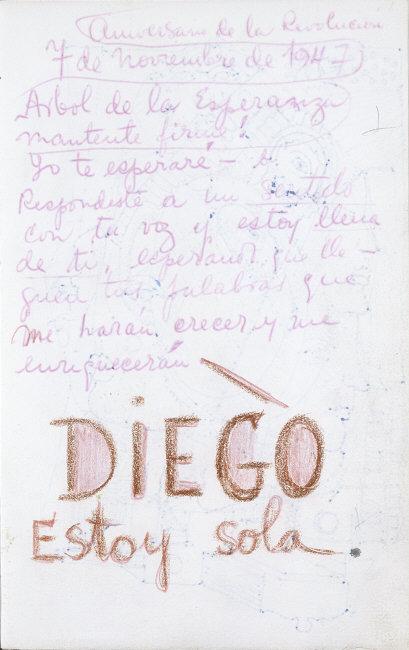 Aniversario de la Revolución
7 de Noviembre de 1947
Arbol de la Esperanza
mantente firme!
Yo te esperaré –
Respondiste a un sentido
con tu voz y estoy llena
de ti, esperando que lle –
guen tus palabras que
me harán crecer y me
enriquecerán
DIEGO
Estoy sola.